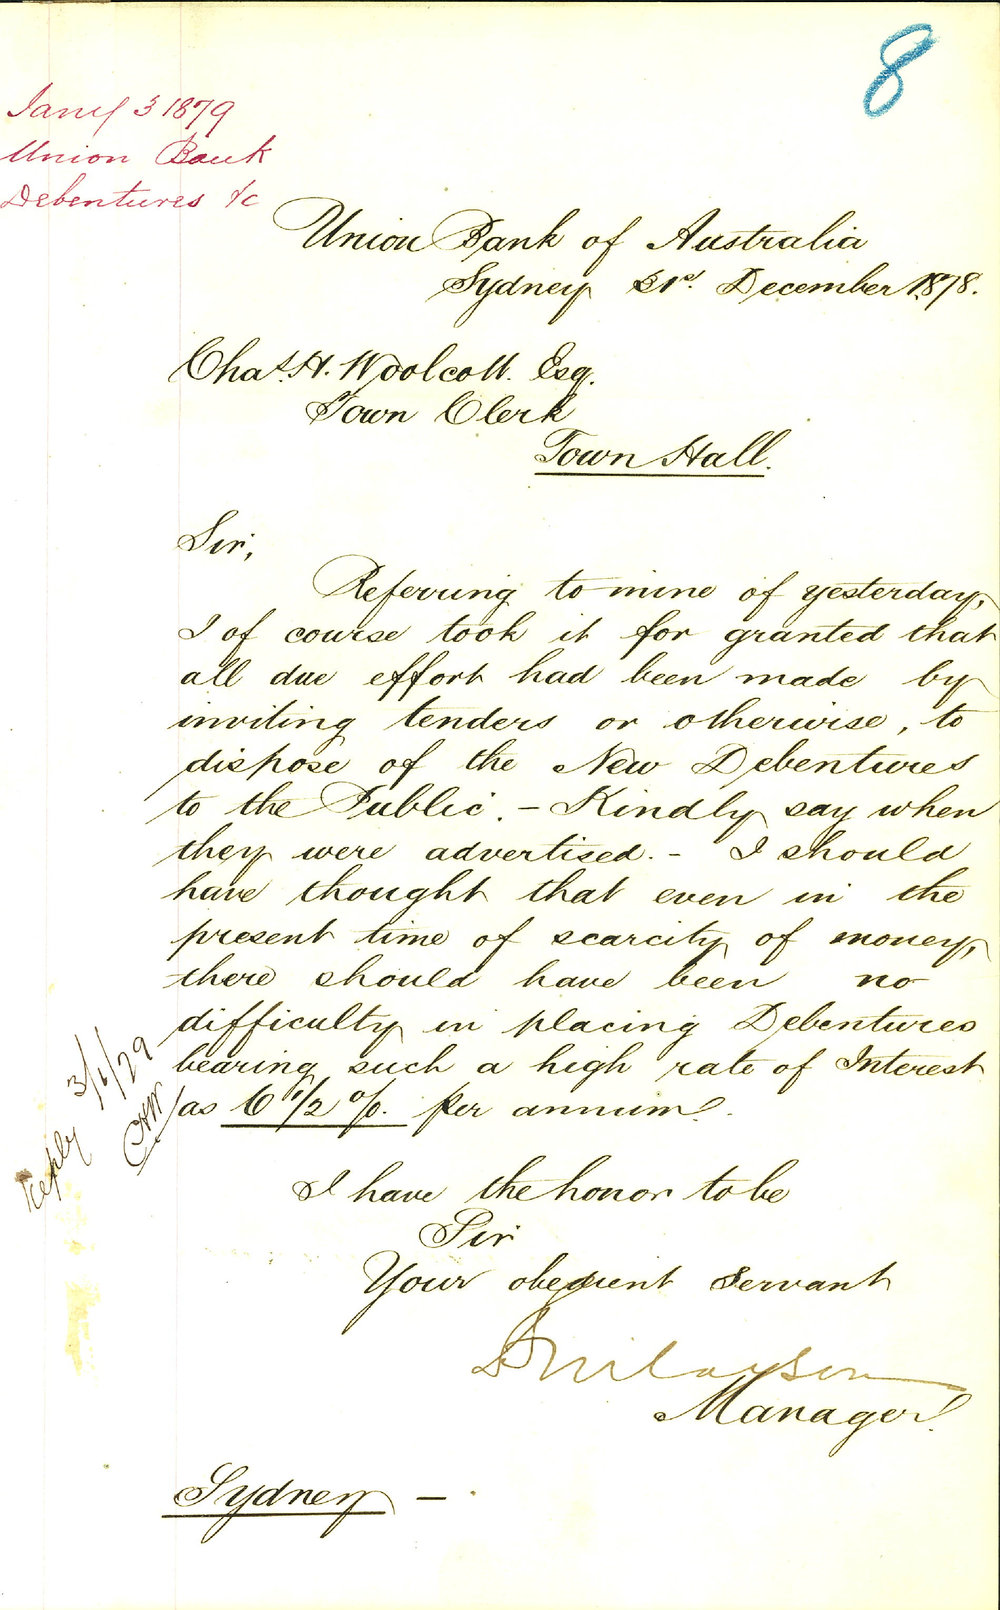 8
Jany 3 1879
Union Bank
Debentures &c
Union Bank of Australia
Sydney 31st. December 1878.
Chas. H. Woolcott. Esq.
Town Clerk
Town Hall.
Sir,
Referring to mine of yesterday,
I of course took it for granted that
all due effort had been made by
inviting tenders or otherwise, to
dispose of the New Debentures
to the Public. - Kindly say when
they were advertised. - I should
have thought that even in the
present time of scarcity of money,
there should have been no
difficulty in placing Debentures
bearing such a high rate of Interest
as 6 1/2 %. per annum.
Reply 3/1/79
CHW
I have the honor to be
Sir
Your obedient servant
Manager.
Sydney -